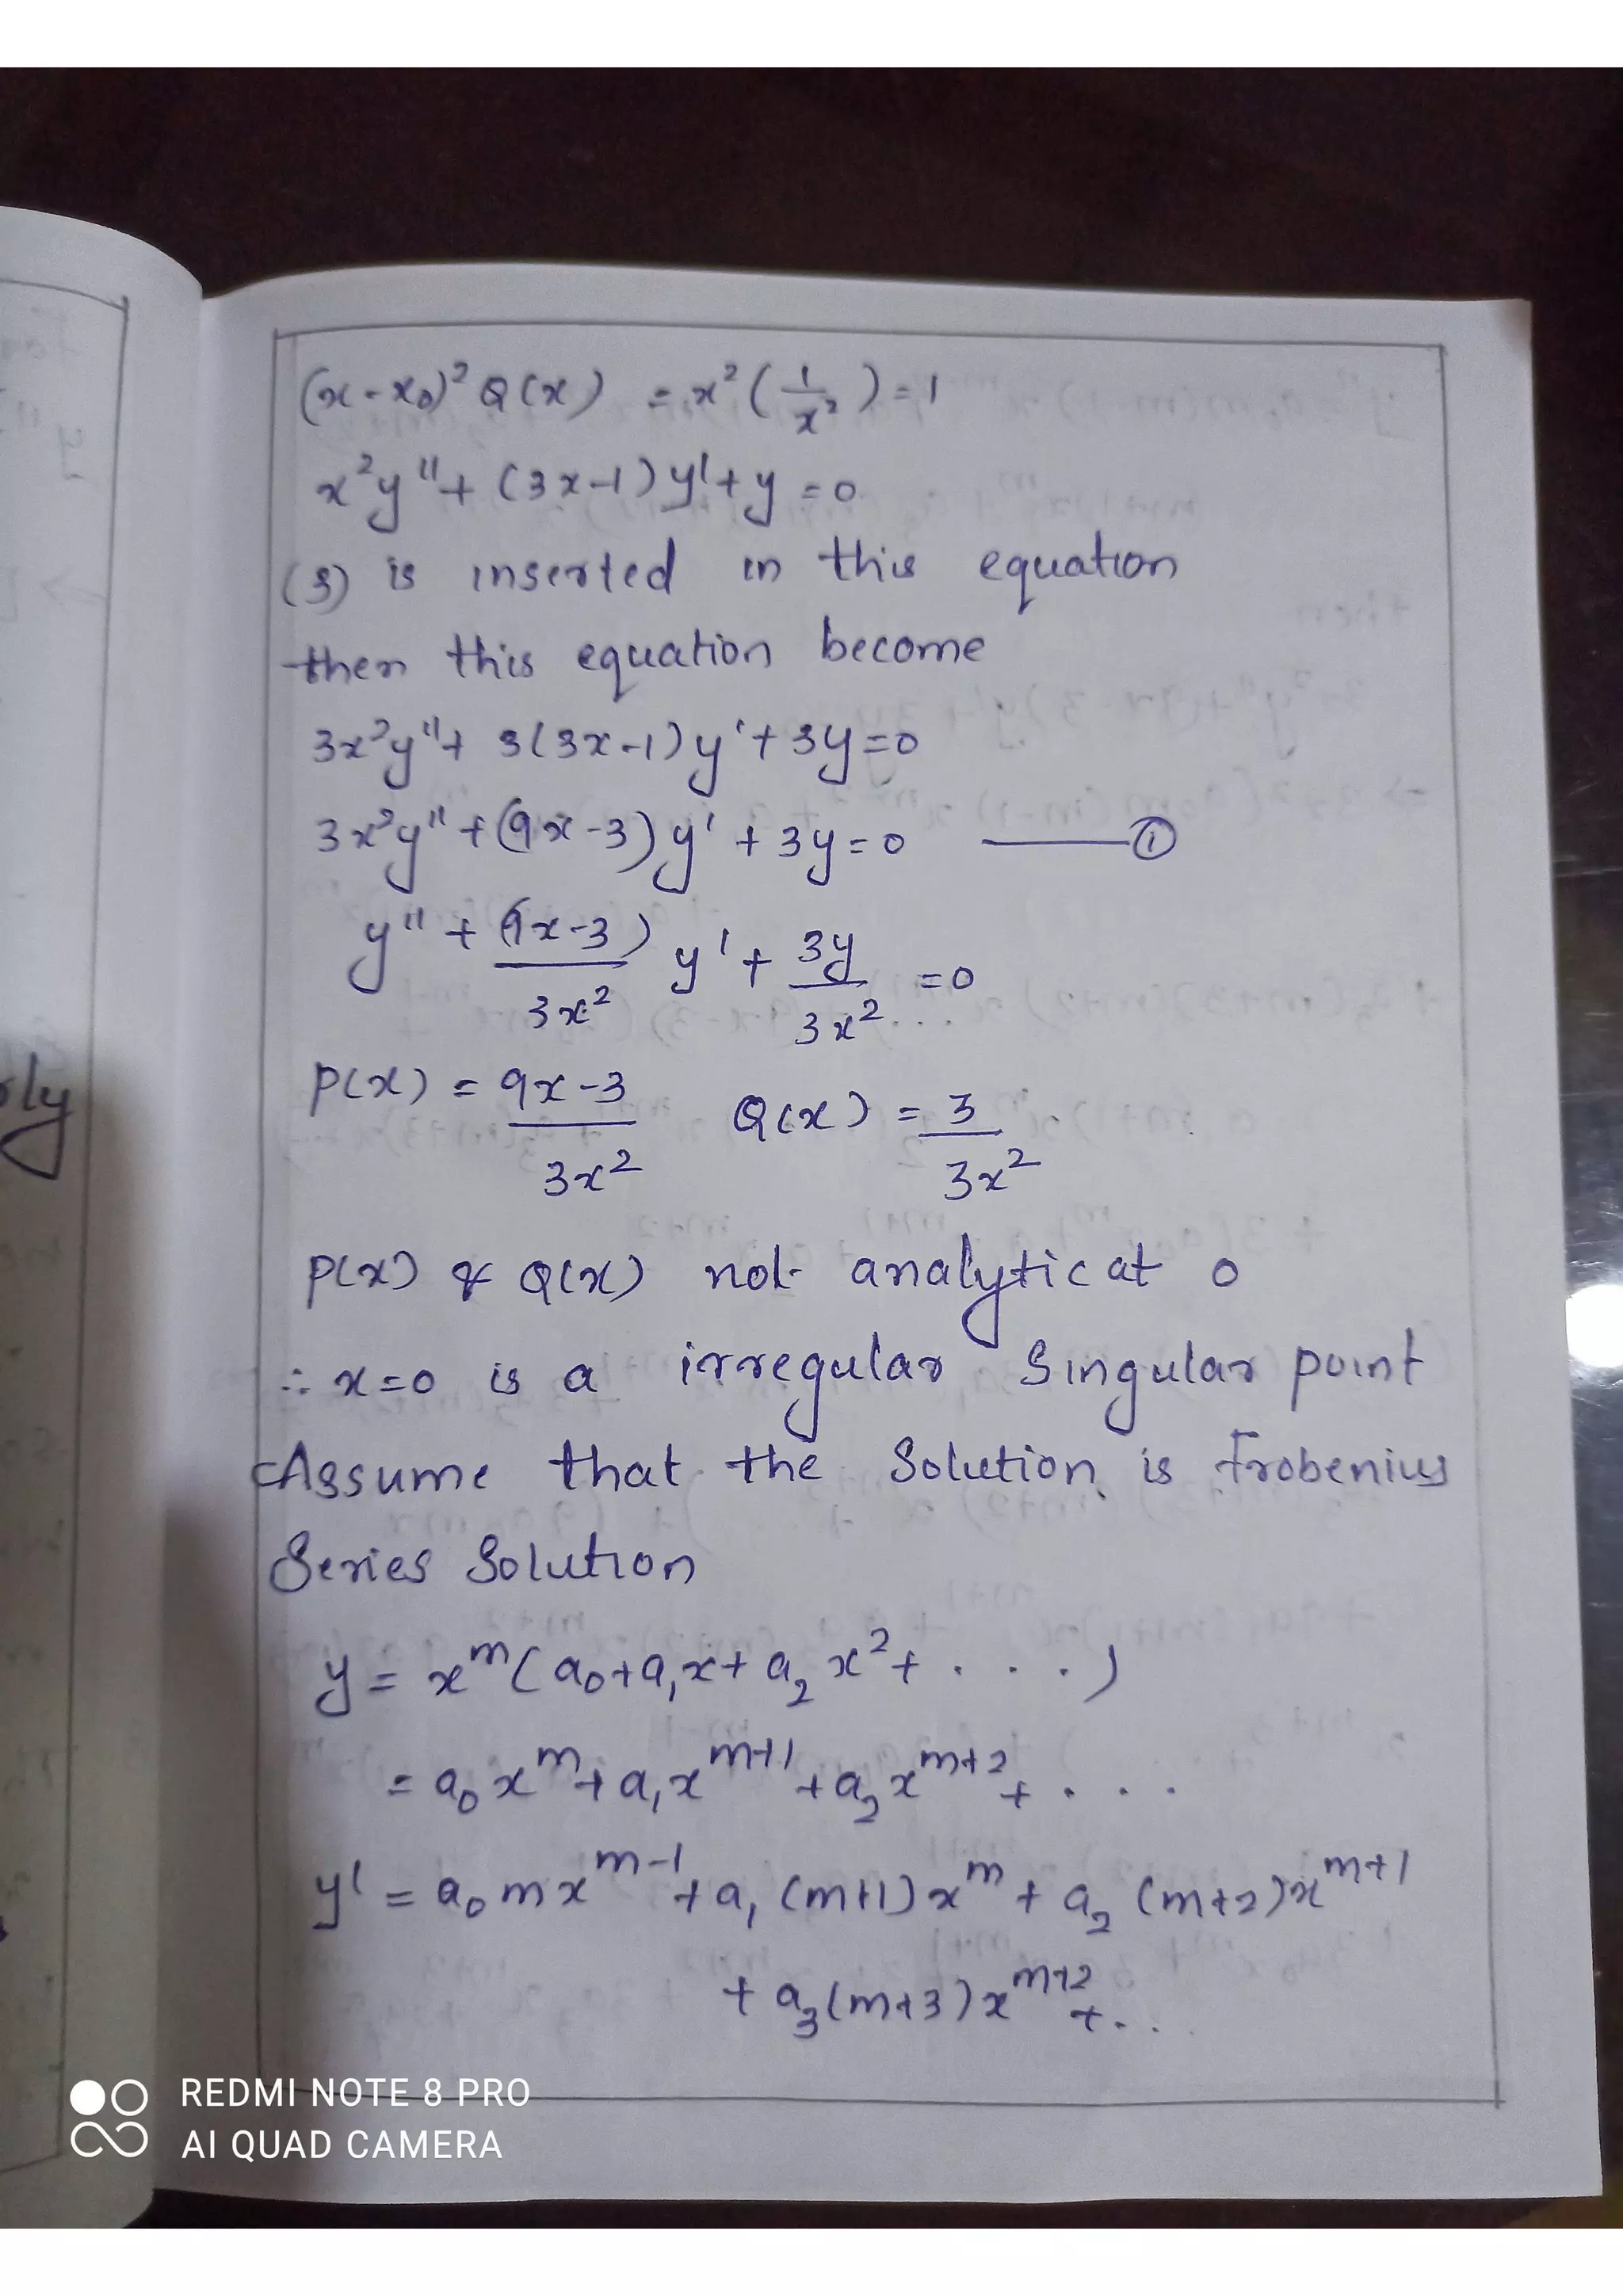 (x-x₀)² Q(x) = x² (1/x²) = 1
x²y'' + (3x-1) y' + y = 0
(3) is inserted in this equation
then this equation become
3x²y'' + 3(3x-1) y' + 3y = 0
3x²y'' + (9x-3) y' + 3y = 0 ——— ①
y'' + (9x-3)/3x² y' + 3y/3x² = 0
P(x) = 9x-3/3x² Q(x) = 3/3x²
P(x) & Q(x) not analytic at 0
∴ x=0 is a irregular singular point
Assume that the solution is Frobenius
Series solution
y = x^m (a₀+a₁x+a₂x²+ . . . )
= a₀x^m + a₁x^m+1 + a₂x^m+2 + . . .
y' = a₀mx^m-1 + a₁(m+1)x^m + a₂(m+2)x^m+1
+ a₃(m+3)x^m+2 + ...
rly
REDMI NOTE 8 PRO
AI QUAD CAMERA